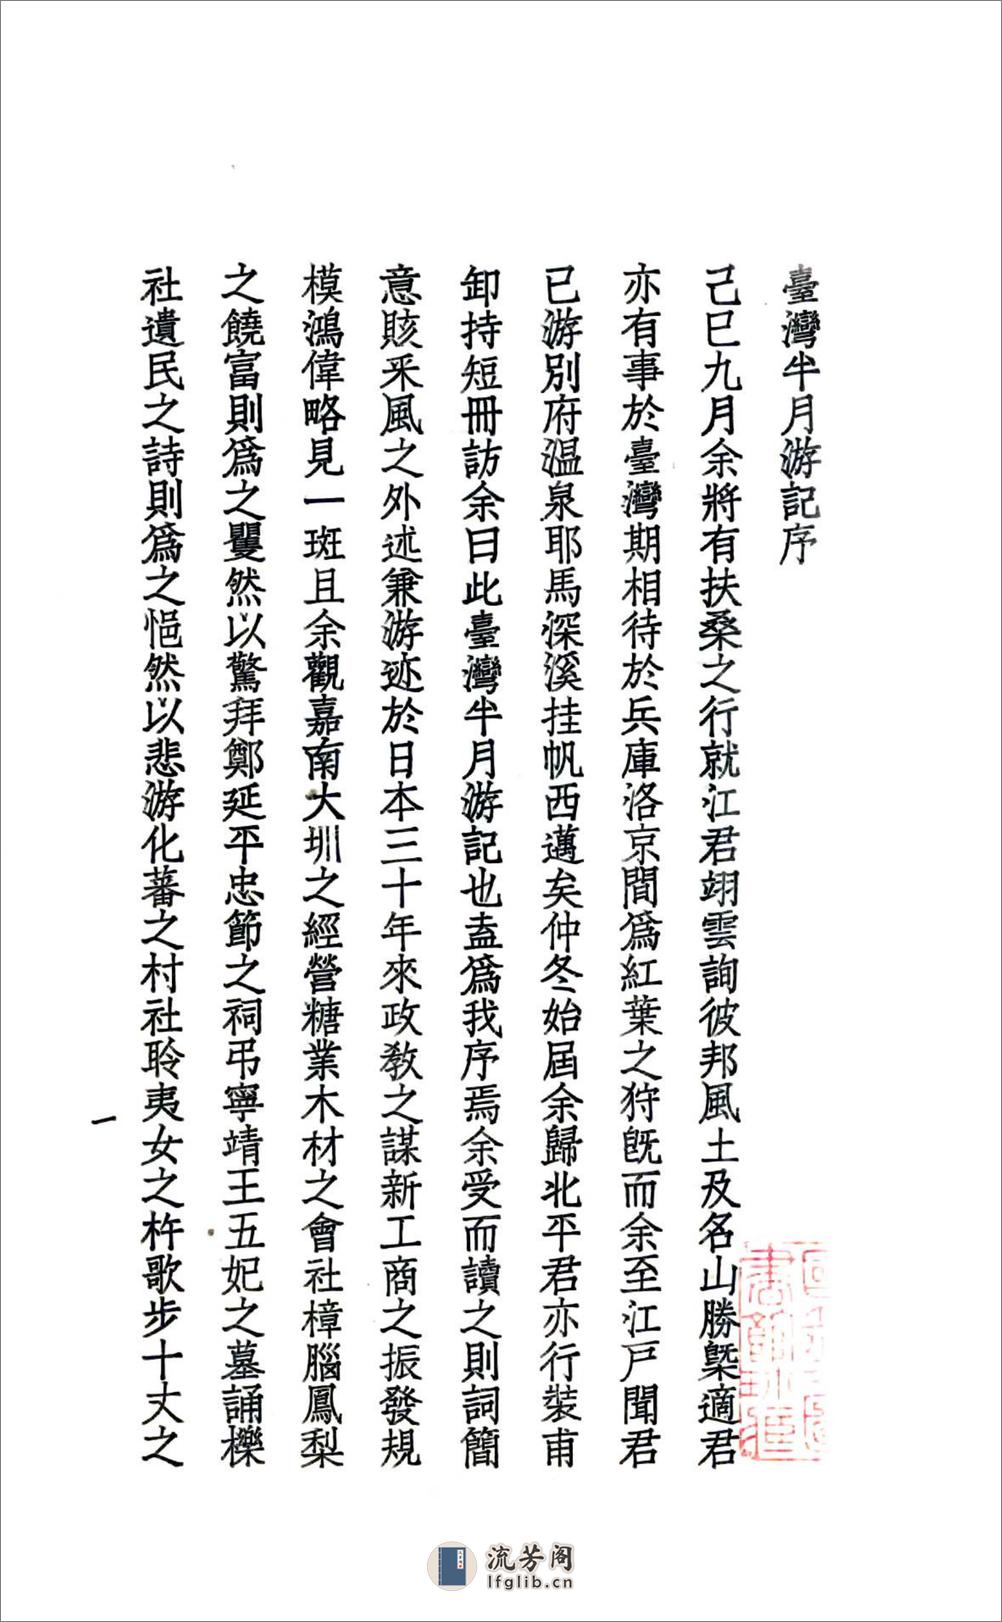 臺灣半月游記序
己巳九月余將有扶桑之行就江君翊雲詢彼邦風土及名山勝槩適君
亦有事於臺灣期相待於兵庫洛京間爲紅葉之狩旣而余至江戸聞君
已游別府温泉耶馬深溪挂帆西邁矣仲冬始屆余歸北平君亦行裝甫
卸持短冊訪余曰此臺灣半月游記也盍爲我序焉余受而讀之則詞簡
意賅釆風之外述兼游迹於日本三十年來政教之謀新工商之振發規
模鴻偉略見一斑且余觀嘉南大圳之經營糖業木材之會社樟腦鳳梨
之饒富則爲之矍然以驚拜鄭延平忠節之祠弔寧靖王五妃之墓誦櫟
社遺民之詩則爲之悒然以悲游化蕃之村社聆夷女之杵歌步十丈之
一
流芳阁
lfglib.cn